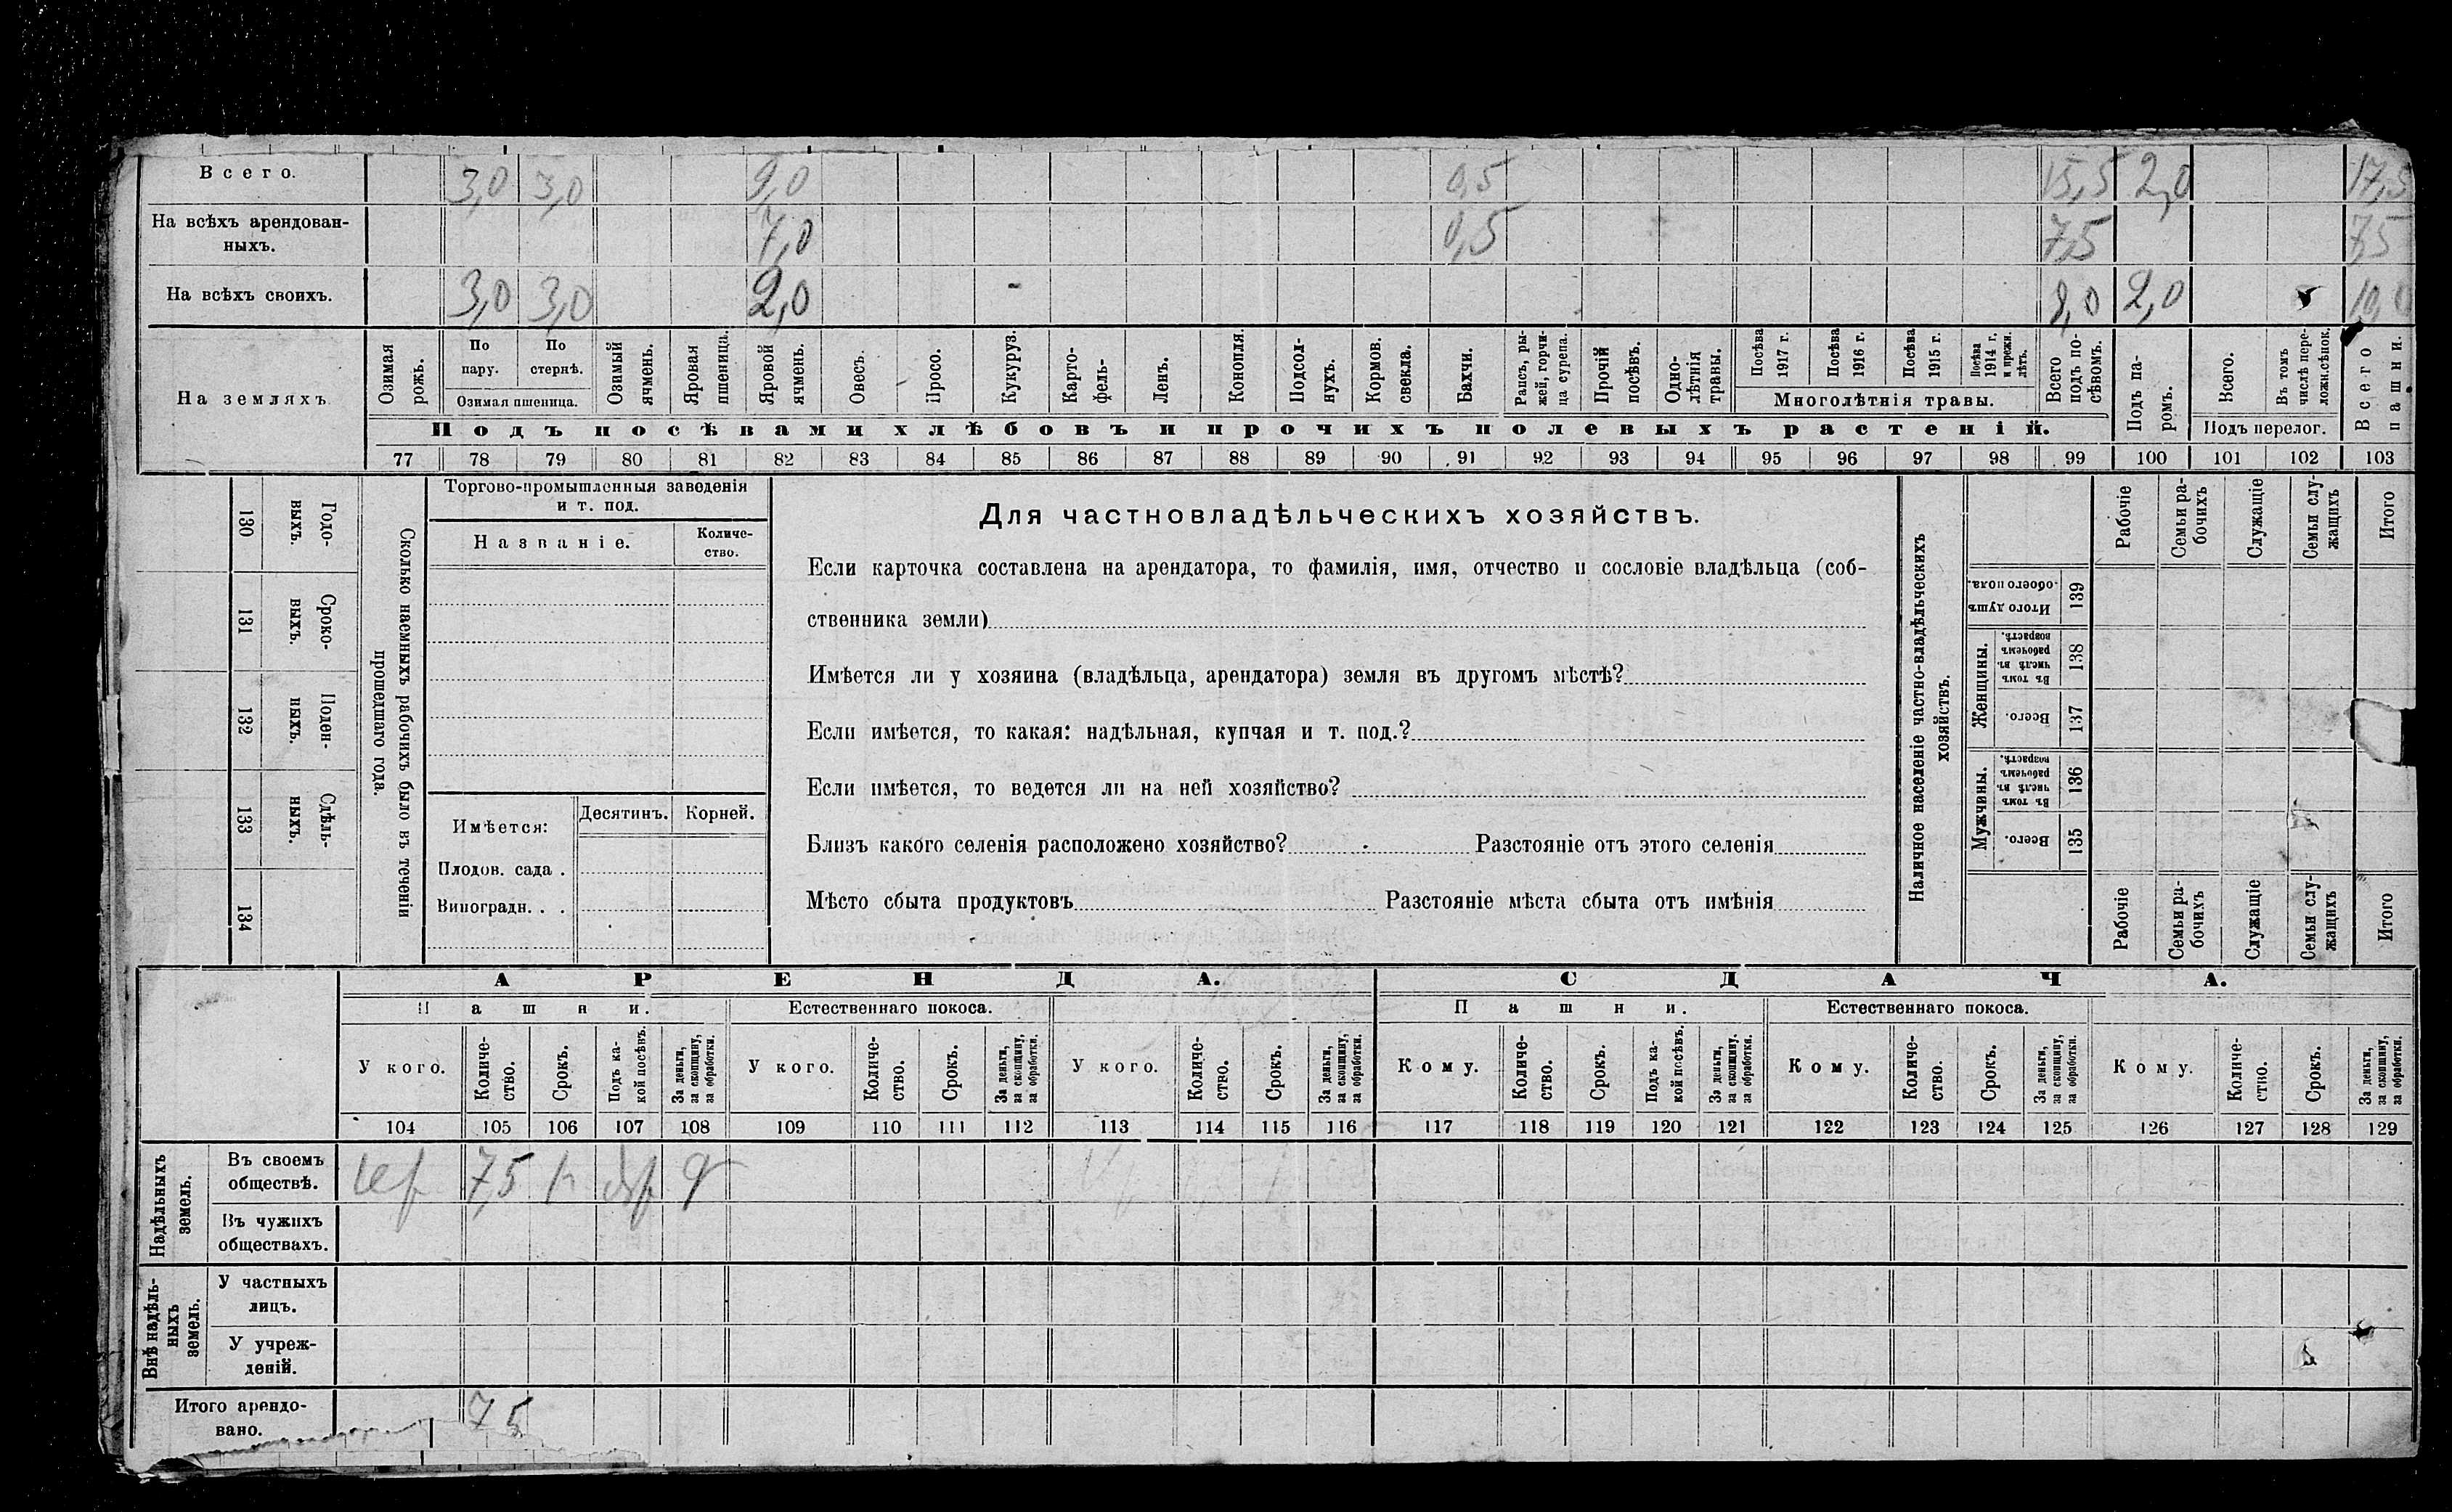 Всего. 3,0 3,0 9,0 0,5 15,5 2,0 17,5
На всѣхъ арендован-
ныхъ. 7,0 0,5 7,5 7,5
На всѣхъ своихъ. 3,0 3,0 2,0 8,0 2,0 10,0
На земляхъ.
Озимая рожь.
По пару.
По стернѣ.
Озимая пшеница.
Озимый ячмень.
Яровая пшеница.
Яровой ячмень.
Овесъ.
Просо.
Кукуруз.
Карто-
фель-
Ленъ.
Конопля.
Подсол-
нухъ.
Кормов.
свекла.
Бахчи.
Рапсъ, ры-
жей, горчи-
ца сурепа.
Прочій
посѣвъ.
Одно-
лѣтнія
травы.
Посѣва
1917 г.
Посѣва
1916 г.
Посѣва
1915 г.
Посѣва
1914 г.
и прежн.
лѣтъ.
Многолѣтнія травы.
Всего
подъ по-
сѣвомъ.
Подъ па-
ромъ.
Всего.
Въ томъ
числѣ пере-
ложн.сѣнок.
Подъ перелог.
Всего
пашни.
Подъ посѣвами хлѣбовъ и прочихъ полевыхъ растеній.
77 78 79 80 81 82 83 84 85 86 87 88 89 90 91 92 93 94 95 96 97 98 99 100 101 102 103
130 Годо-
выхъ.
131 Сроко-
выхъ.
132 Поден-
ныхъ.
133 Сдѣль-
ныхъ.
134
Сколько наемныхъ рабочихъ было въ теченіи
прошедшаго года.
Торгово-промышленныя заведенія
и т. под.
Названіе.
Количе-
ство.
Имѣется:
Десятинъ. Корней.
Плодов. сада .
Виноградн. . .
Для частновладѣльческихъ хозяйствъ.
Если карточка составлена на арендатора, то фамилія, имя, отчество и сословіе владѣльца (соб-
ственника земли)
Имѣется ли у хозяина (владѣльца, арендатора) земля въ другомъ мѣстѣ?
Если имѣется, то какая: надѣльная, купчая и т. под.?
Если имѣется, то ведется ли на ней хозяйство?
Близъ какого селенія расположено хозяйство? Разстояніе отъ этого селенія
Мѣсто сбыта продуктовъ Разстояніе мѣста сбыта отъ имѣнія
Наличное населеніе частно-владѣльческихъ
хозяйствъ.
Рабочіе
Семьи ра-
бочихъ
Служащіе
Семьи слу-
жащихъ
Итого
Итого душъ
обоего пола.
139
Женщины.
Въ томъ
числѣ въ
рабочемъ
возрастѣ.
138
Всего.
137
Мужчины.
Въ томъ
числѣ въ
рабочемъ
возрастѣ.
136
Всего.
135
Рабочіе
Семьи ра-
бочихъ
Служащіе
Семьи слу-
жащихъ
Итого
АРЕНДА. СДАЧА.
Пашни. Естественнаго покоса. Пашни. Естественнаго покоса.
У кого.
Количе-
ство.
Срокъ.
Подъ ка-
кой посѣвъ.
За деньги,
за скопщину,
за обработки.
У кого.
Количе-
ство.
Срокъ.
За деньги,
за скопщину,
за обработки.
У кого.
Количе-
ство.
Срокъ.
За деньги,
за скопщину,
за обработки.
Кому.
Количе-
ство.
Срокъ.
Подъ ка-
кой посѣвъ.
За деньги,
за скопщину,
за обработки.
Кому.
Количе-
ство.
Срокъ.
За деньги,
за скопщину,
за обработки.
Кому.
Количе-
ство.
Срокъ.
За деньги,
за скопщину,
за обработки.
104 105 106 107 108 109 110 111 112 113 114 115 116 117 118 119 120 121 122 123 124 125 126 127 128 129
Надѣльныхъ
земель.
Въ своемъ
обществѣ. 7,5
Въ чужихъ
обществахъ.
Внѣ надѣль-
ныхъ
земель.
У частныхъ
лицъ.
У учреж-
деній.
Итого арендо-
вано. 7,5